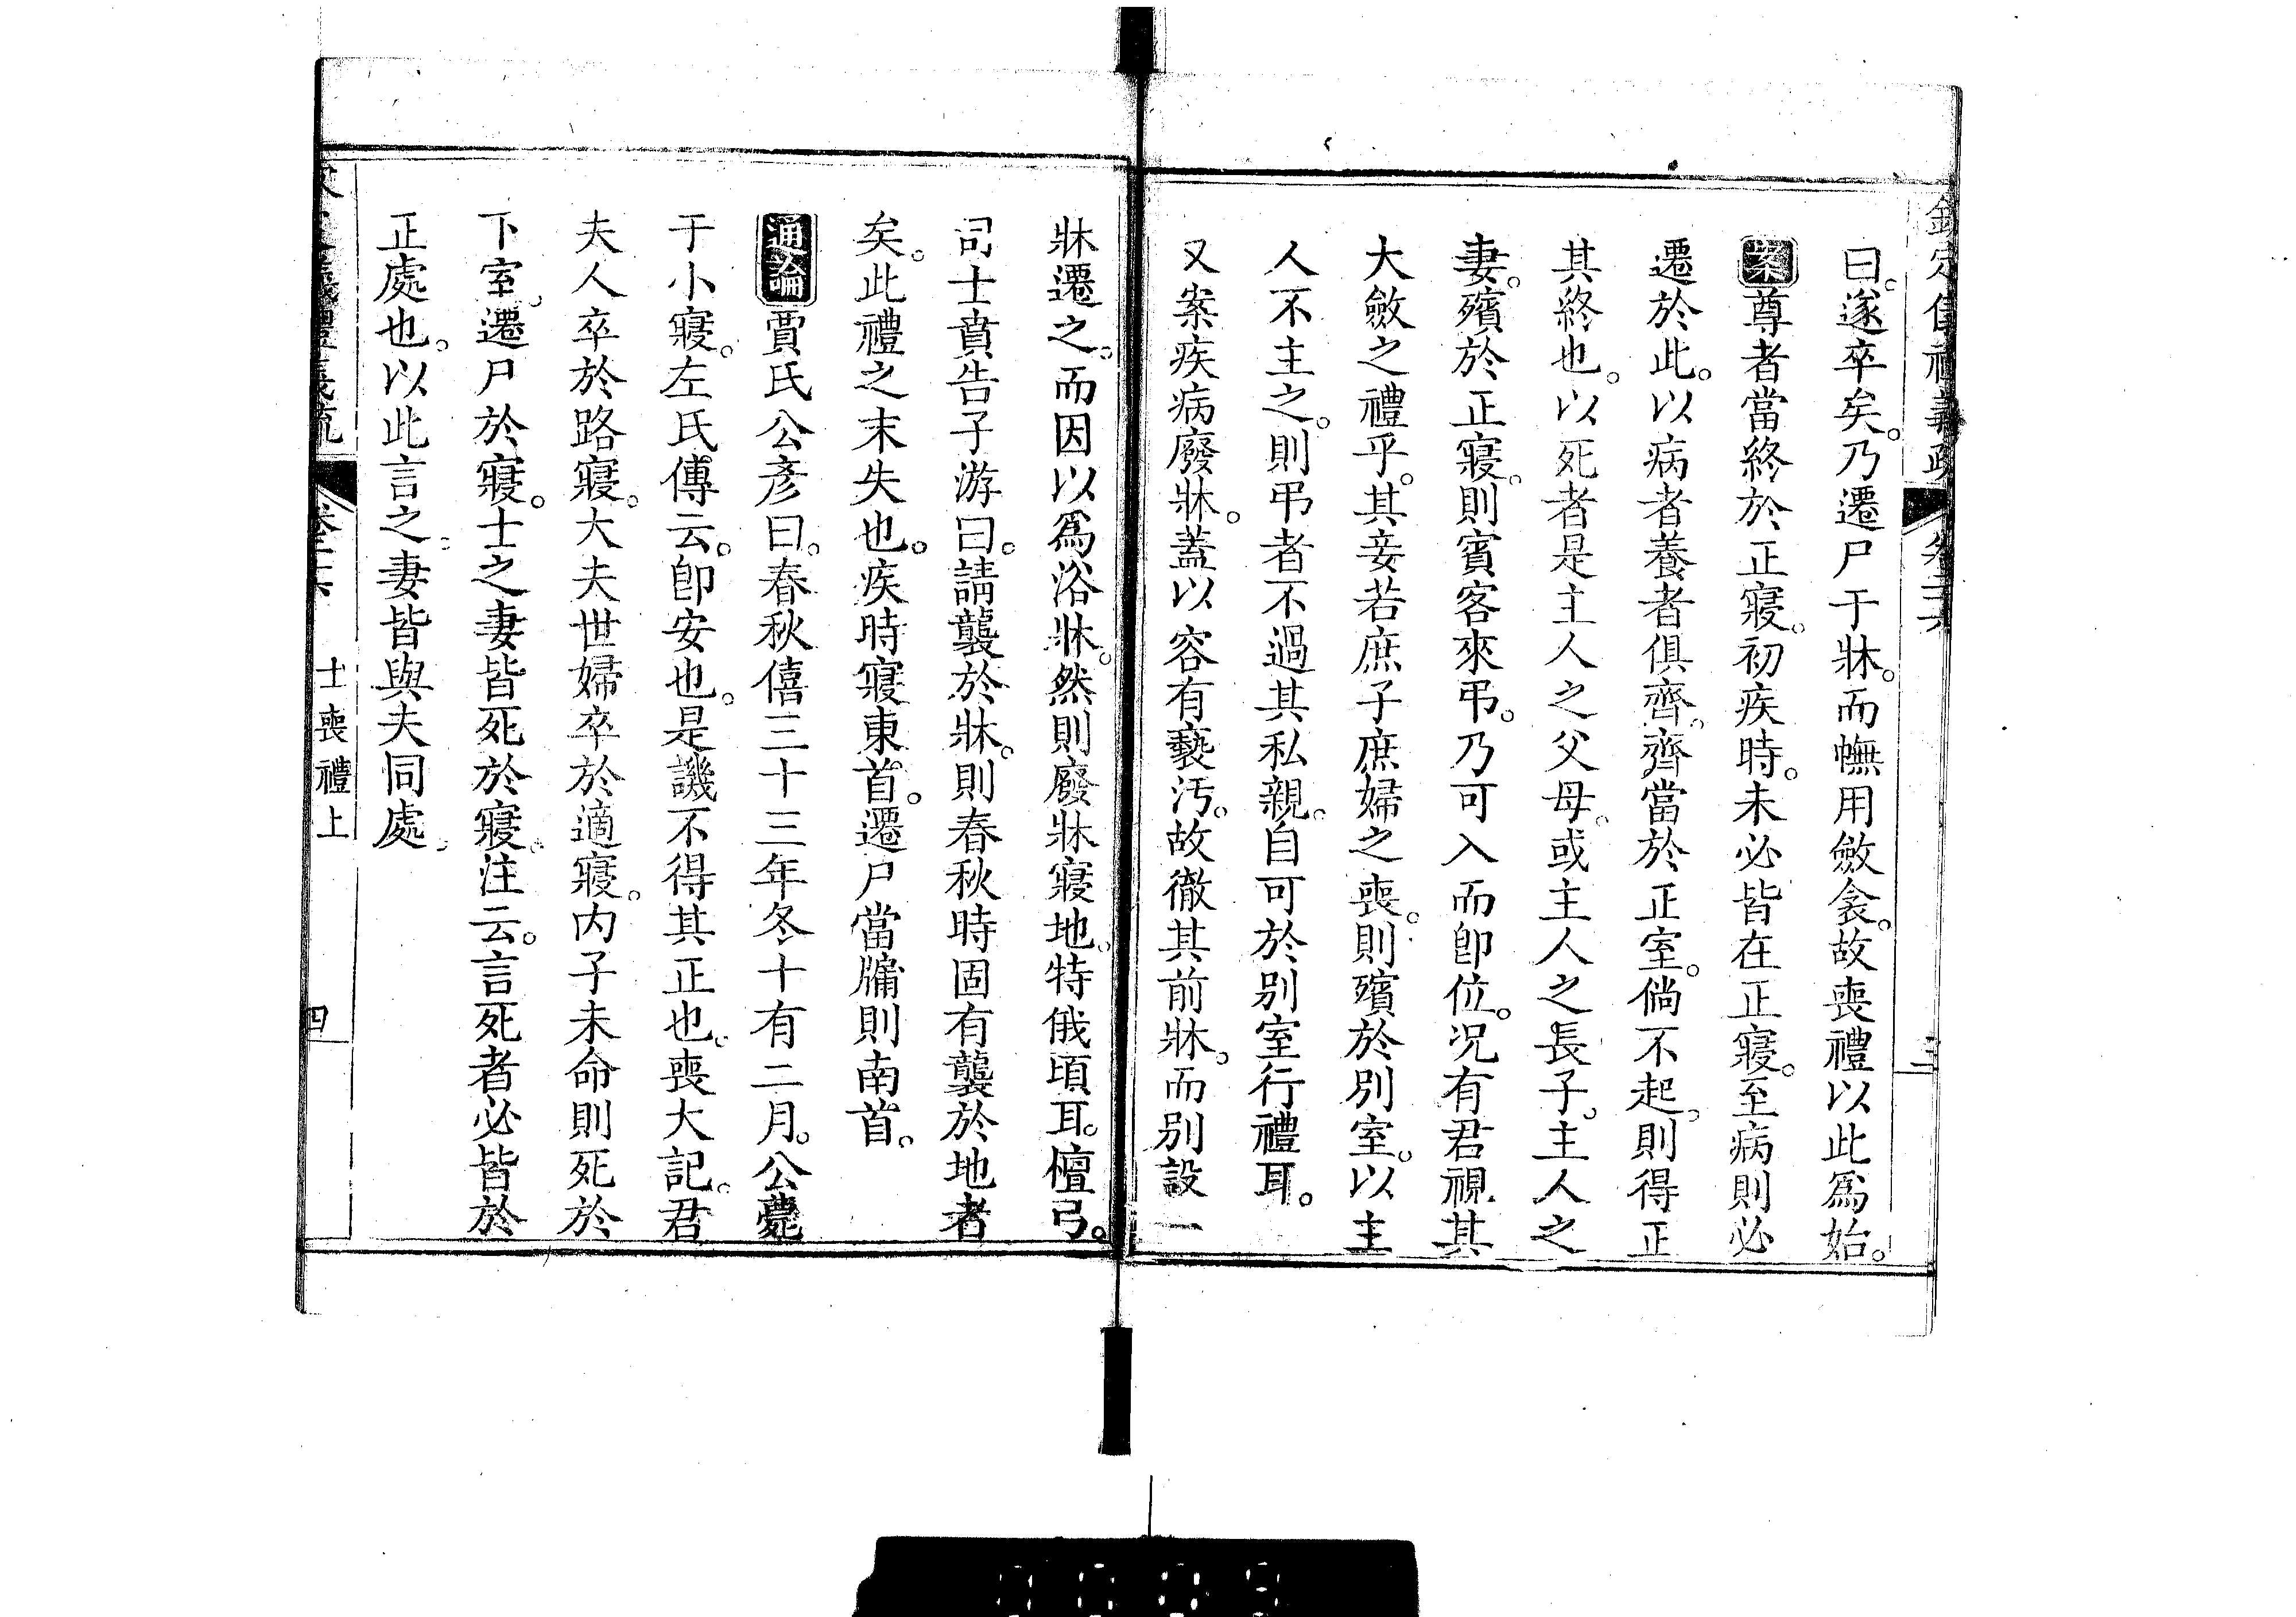 欽定儀禮義疏 卷二十六 三
曰。遂卒矣。乃遷尸于牀。而幠用斂衾。故喪禮以此爲始。
案尊者當終於正寢。初疾時。未必皆在正寢。至病則必
遷於此。以病者養者俱齊。齊當於正室。倘不起。則得正
其終也。以死者是主人之父母。或主人之長子。主人之
妻。殯於正寢。則賓客來弔。乃可入而卽位。況有君視其
大斂之禮乎。其妾若庶子庶婦之喪。則殯於別室。以主
人不主之。則弔者不過其私親。自可於別室行禮耳。
又案疾病廢牀。蓋以容有褻汚。故徹其前牀。而別設一
牀遷之。而因以爲浴牀。然則廢牀寢地。特俄頃耳。檀弓。
司士賁告子游曰。請襲於牀。則春秋時固有襲於地者
矣。此禮之末失也。疾時寢東首。遷尸當牖則南首。
通論賈氏公彥曰。春秋僖三十三年冬十有二月。公薨
于小寢。左氏傳云。卽安也。是譏不得其正也。喪大記。君
夫人卒於路寢。大夫世婦卒於適寢。內子未命則死於
下室。遷尸於寢。士之妻皆死於寢。注云。言死者必皆於
正處也。以此言之。妻皆與夫同處。
欽定儀禮義疏 卷二十六 士喪禮上 四